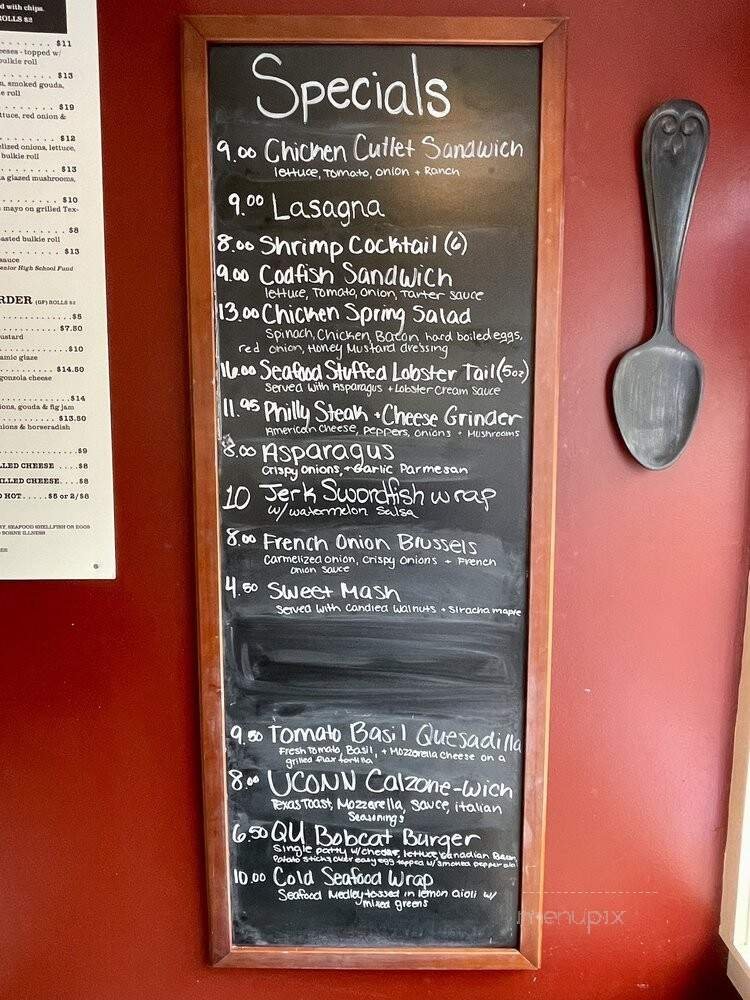 d with chips.
ROLLS $2
$11
eeses - topped w/
bulkie roll
$13
n, smoked gouda,
e roll
$19
ttuce, red onion &
$12
elized onions, lettuce,
bulkie roll
$13
a glazed mushrooms,
$10
mayo on grilled Tex-
$8
oasted bulkie roll
$13
sauce
enior High School Fund
RDER (GF) ROLLS $2
$5
$7.50
ustard
$10
amic glaze
$14.50
gonzola cheese
$14
ions, gouda & fig jam
$13.50
nions & horseradish
$9
LLED CHEESE ....$8
ILLED CHEESE....$8
D HOT.....$5 or 2/$8
RY, SEAFOOD SHELLFISH OR EGGS
D BORNE ILLNESS
Specials
9.00 Chicken Cutlet Sandwich
lettuce, Tomato, onion + Ranch
9.00 Lasagna
8.00 Shrimp Cocktail (6)
9.00 Codfish Sandwich
lettuce, Tomato, onion, Tarter sauce
13.00 Chicken Spring Salad
Spinach, Chicken, Bacon, hard boiled eggs,
red onion, Honey Mustard dressing
16.00 Seafood Stuffed Lobster Tail (5oz)
Served with Asparagus + Lobster Cream Sauce
11.95 Philly Steak + Cheese Grinder
American Cheese, Peppers, Onions + Mushrooms
8.00 Asparagus
Crispy onions, + Garlic Parmesan
10 Jerk Swordfish wrap
w/ watermelon Salsa
8.00 French Onion Brussels
Carmelized onion, crispy onions + French
onion sauce
4.50 Sweet Mash
Served with Candied Walnuts + Siracha maple
9.50 Tomato Basil Quesadilla
Fresh Tomato, Basil, + Mozzorella Cheese on a
grilled flour tortilla
8.00 UCONN Calzone-wich
Texas Toast, Mozzerella, Sauce, italian
Seasonings
6.50 QU Bobcat Burger
Single patty w/ chedar, lettuce, canadian Bacon,
Potato sticks, over easy egg topped w/ smoked pepper aioli
10.00 Cold Seafood Wrap
Seafood Medley tossed in lemon aioli w/
mixed greens
menupix